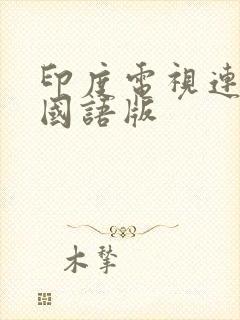 印度電視連
國語版
木摯